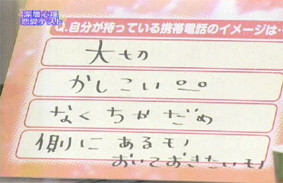 深層心理
恋愛テスト
Q.自分が持っている携帯電話のイメージは…
大切
かしこい
なくちゃだめ
側にあるも!
おいておきたいも!